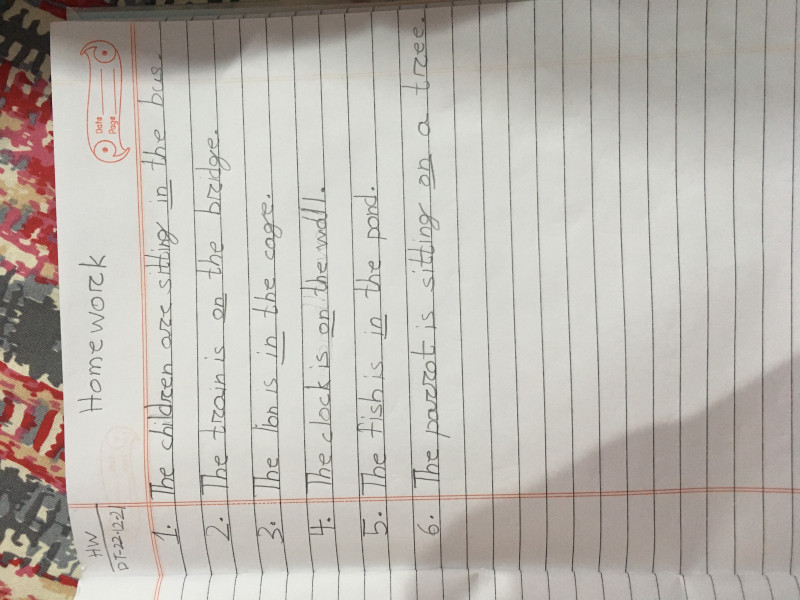 HW
DT-22-12-21
Homework
Date
Page
1. The children are sitting in the bus.
2. The train is on the bridge.
3. The lion is in the cage.
4. The clock is on the wall.
5. The fish is in the pond.
6. The parrot is sitting on a tree.